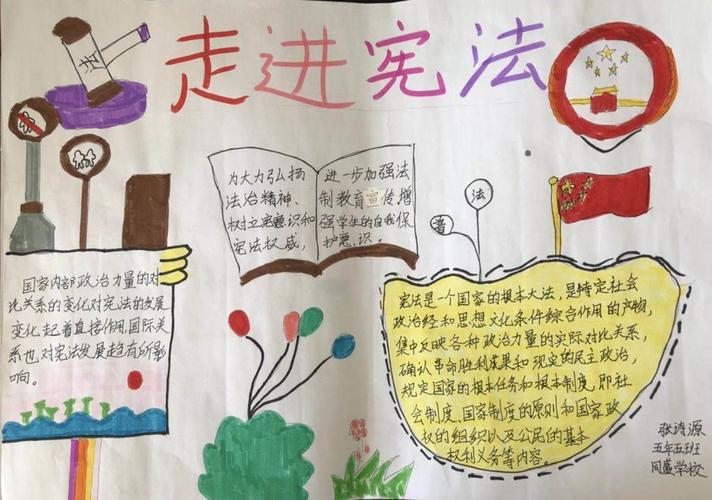 走进宪法
法
为大力弘扬
法治精神、
树立宪意识和
宪法权威,
进一步加强法
制教育宣传增
强学生的自我保
护意识。
普
法
国家内部政治力量的对
比关系的变化对宪法的发展
变化起着直接作用国际关
系也对宪法发展趋有所影
响。
宪法是一个国家的根本大法,是特定社会
政治经和思想文化条件综合作用的产物,
集中反映各种政治力量的实际对比关系,
确认革命胜利成果和现定的民主政治,
规定国家的根本任务和根本制度,即社
会制度、国家制度的原则和国家政
权的组织以及公民的基本
权利义务等内容。
张诗源
五年五班
同盛学校